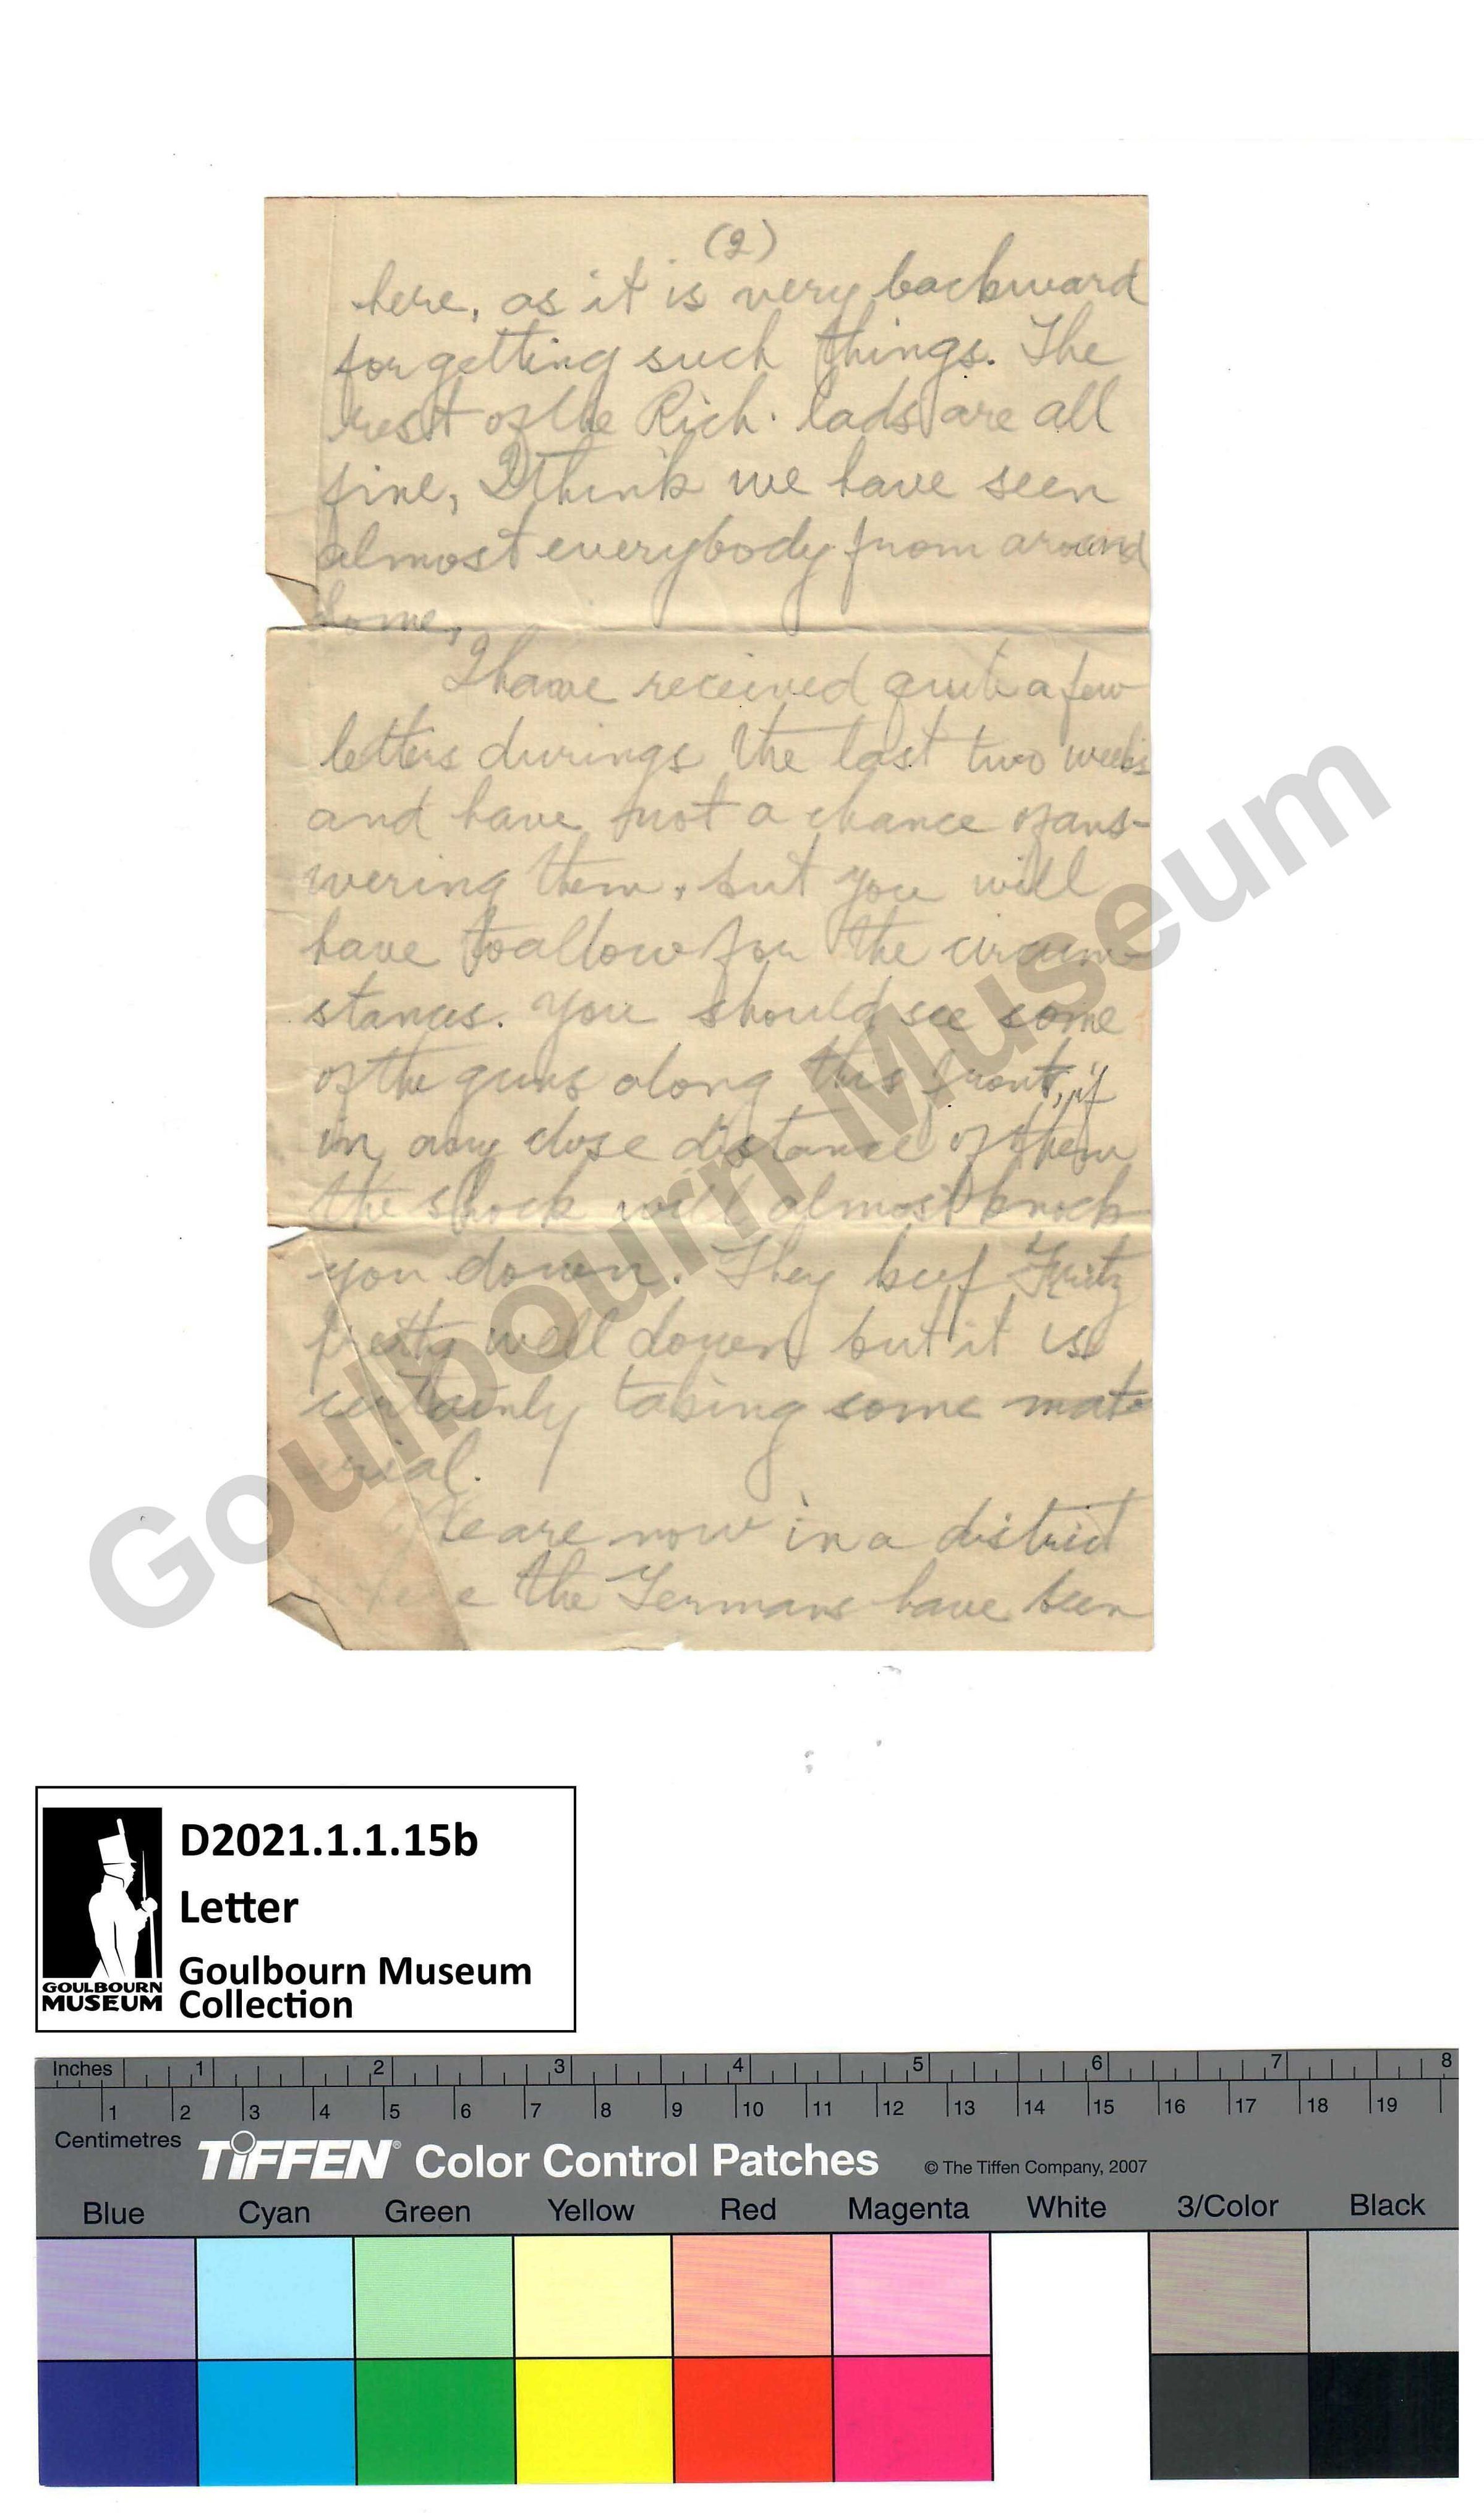 (2)
here, as it is very backward
for getting such things. The
rest of the Rich. lads are all
fine, I think we have seen
almost everybody from around
home.
I have received quite a few
letters durings the last two weeks
and have not a chance of ans-
wering them, but you will
have to allow for the circum-
stances. You should see some
of the guns along this front, if
in any close distance of them
the shock will almost knock
you down. They keep Fritz
pretty well down but it is
certainly taking some mate
rial.
We are now in a district
where the Germans have been
Goulbourn Museum
D2021.1.1.15b
Letter
Goulbourn Museum
Collection
GOULBOURN
MUSEUM
Inches 1 2 3 4 5 6 7 8
1 2 3 4 5 6 7 8 9 10 11 12 13 14 15 16 17 18 19
Centimetres
TIFFEN® Color Control Patches © The Tiffen Company, 2007
Blue Cyan Green Yellow Red Magenta White 3/Color Black